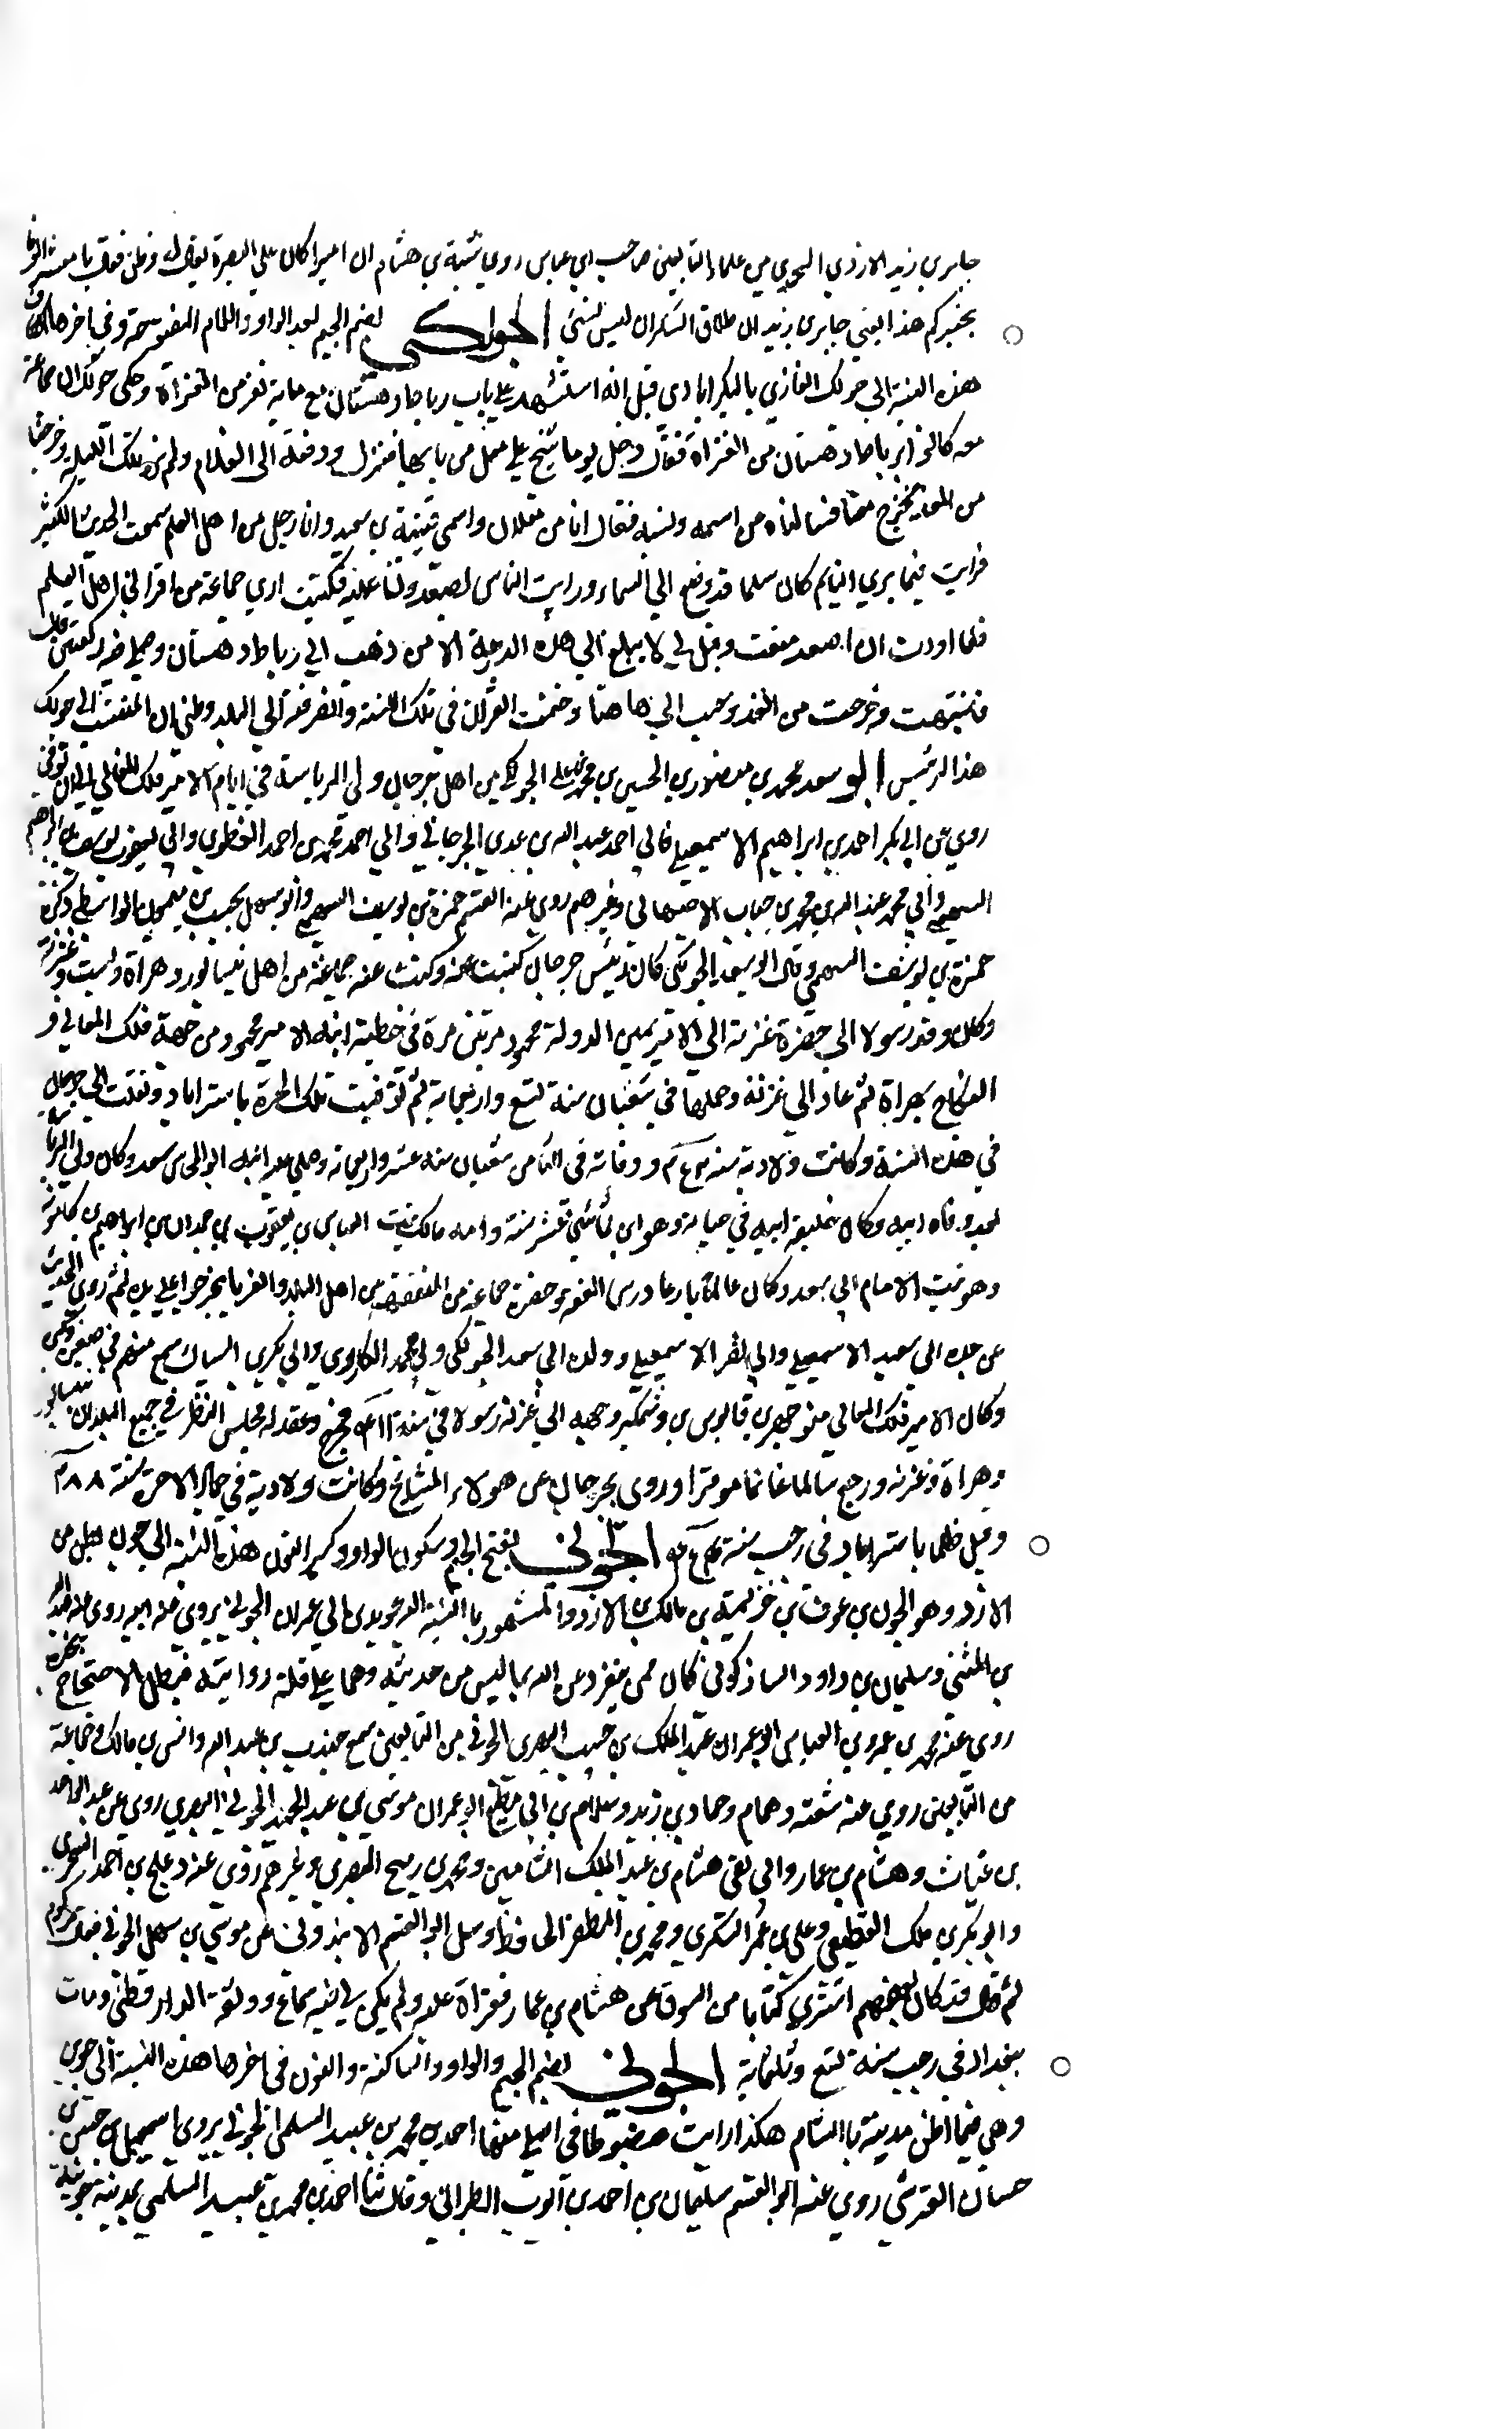 جابر بن زيد الازدي اليحمدي من علماء التابعين صاحب ابن عباس روي شيبة بن هشام ان اميرا كان علي البصرة يقال له قطن فقال يا معشر
يخبركم هذا يعني جابر بن زيد ان طلاق السكران ليس بشئ الجولكي بضم الجيم بعد الواو واللام المفتوحة وفي اخرها الكاف
هذه النسبة الي جولك الغازي بالبكراباذي قيل انه استشهد علي باب رباط دهستان مع ماية نفر من الغزاة وحكي جولك ان جماعة
معه كانوا برباط دهستان من الغزاة فدخل يوما شيخ علي بغل من بابها فنزل ودفعه الي الغلام ولم نره تلك الليلة وخرجنا
من الغد فخرج معنا فسالناه من اسمه ونسبه فقال انا من بغلان واسمي قتيبة بن سعيد وانا رجل من اهل العلم سمعت الحديث الكثير
فرايت فيما يري النايم كان سلما قد وضع الي السماء ورايت الناس يصعدون عليه فكنت اري جماعة من اقراني اهل العلم
فلما اردت ان اصعد منعت وقيل لي لا يبلغ الي هذه الدرجة الا من ذهب الي رباط دهستان وصلي فيه ركعتين قال
فانتبهت وخرجت من الغد وجيت الي ها هنا وختمت القران في تلك السنة وانصرفت الي البلد وظني ان المنتسب الي جولك
هذا الرئيس ابو سعد محمد بن منصور بن الحسين بن محمد بن علي الجولكي من اهل جرجان ولي الرياسة في ايام الامير فلك المعالي الي ان توفي
روي عن ابي بكر احمد بن ابراهيم الاسمعيلي وابي احمد عبد الله بن عدي الجرجاني وابي احمد محمد بن احمد الغطريفي وابي يعقوب يوسف بن ابراهيم
السهمي وابي محمد عبد الله بن محمد بن حباب الاصبهاني وغيرهم روي عنه القسم حمزة بن يوسف السهمي وابو سهل نجيب بن ميمون الواسطي وذكره
حمزة بن يوسف السهمي وقال ابو سعد الجولكي كان رئيس جرجان كتبت عنه وكتب عنه جماعة من اهل نيسابور وهراة وبست وغزنة
وكان وفد رسولا الي حضرة غزنة الي الامير يمين الدولة محمود مرتين مرة في خطبة ابنة الامير محمود من جهة فلك المعالي و
النكاح بهراة ثم عاد الي غزنة وحملها في شعبان سنة تسع واربعماية ثم توفيت تلك الحرة باستراباد ونقلت الي جرجان
في هذه السنة وكانت ولادته سنة ووفاته في الثامن شعبان سنة عشر واربعماية وصلي عليه ابنه ابو المحاسن سعد وكان ولي الرياسة
بعد وفاة ابيه وكان خليفة ابيه في حياته وهو ابن ثماني عشر سنة وامه مالك بنت العباس بن يعقوب بن حمدان بن ابراهيم
وهو بنت الامام ابي سعد وكان عالما بارعا درس الفقه وحضره جماعة من المتفقهة من اهل البلد والغربا تخرجوا علي يده ثم روي الحديث
عن جده ابي سعيد الاسمعيلي وابي نصر الاسمعيلي ووالده ابي سعد الجولكي وابي محمد الكازروني وابي بكر بن السباك سمع منهم في صغره وكبره
وكان الامير فلك المعالي منوجهر بن قابوس بن وشمكير وجهه الي غزنة رسولا في سنة فخرج وعقد له مجلس النظر في جميع البلدان نيسابور
وهراة وغزنة ورجع سالما غانما موقرا وروي بجرجان عن هولاء المشايخ وكانت ولادته في جمادي الاخرة سنة ٣٨٨
وقتل ظلما باستراباد في رجب سنة الجَوْني بفتح الجيم وسكون الواو وكسر النون هذه النسبة الي جون بطن من
الازد وهو الجون بن عوف بن خزيمة بن مالك بن الازد والمشهور بالنسبة اليه عويد بن ابي عمران الجوني يروي عن ابيه روي عنه
بن المثني وسليمان بن داود الشاذكوني كان ممن ينفرد عن ابيه بما ليس من حديثه وهما علي قلة روايته فبطل الاحتجاج بخبره
روي عنه محمد بن عمرو بن العباس ابو عمران عبد الملك بن حبيب البصري الجوني من التابعين سمع جندب بن عبد الله وانس بن مالك وجماعة
من التابعين روي عنه شعبة وهمام وحماد بن زيد وسلام بن ابي مطيع ابو عمران موسي بن عبد الحميد الجوني البصري روي عن عبد الواحد
بن غياث وهشام بن عمار وابي تقي هشام بن عبد الملك الشاميين ومحمد بن رمح المصري وغيرهم روي عنه دعلج بن احمد السجزي
وابو بكر بن ملك القطيعي وعلي بن عمر السكري ومحمد بن المظفر الحافظ وسئل ابو القسم الابندوني عن موسي بن سهل الجوني فقال
ثم قال قد كان بعضهم اشتري كتابا من السوق عن هشام بن عمار فقراه عليه ولم يكن فيه سماع ووثقه الدارقطني ومات
ببغداد في رجب سنة سبع وثلثماية الجوني بضم الجيم والواو الساكنة والنون في اخرها هذه النسبة الي جون
وهي فيما اظن مدينة بالشام هكذا رايت مضبوطا في اصلي منها احمد بن محمد بن عبيد السلمي الجوني يروي اسمعيل بن حصن بن
حسان القرشي روي عنه ابو القسم سليمان بن احمد بن ايوب الطبراني وقال ثنا احمد بن محمد بن عبيد السلمي بمدينة جونية